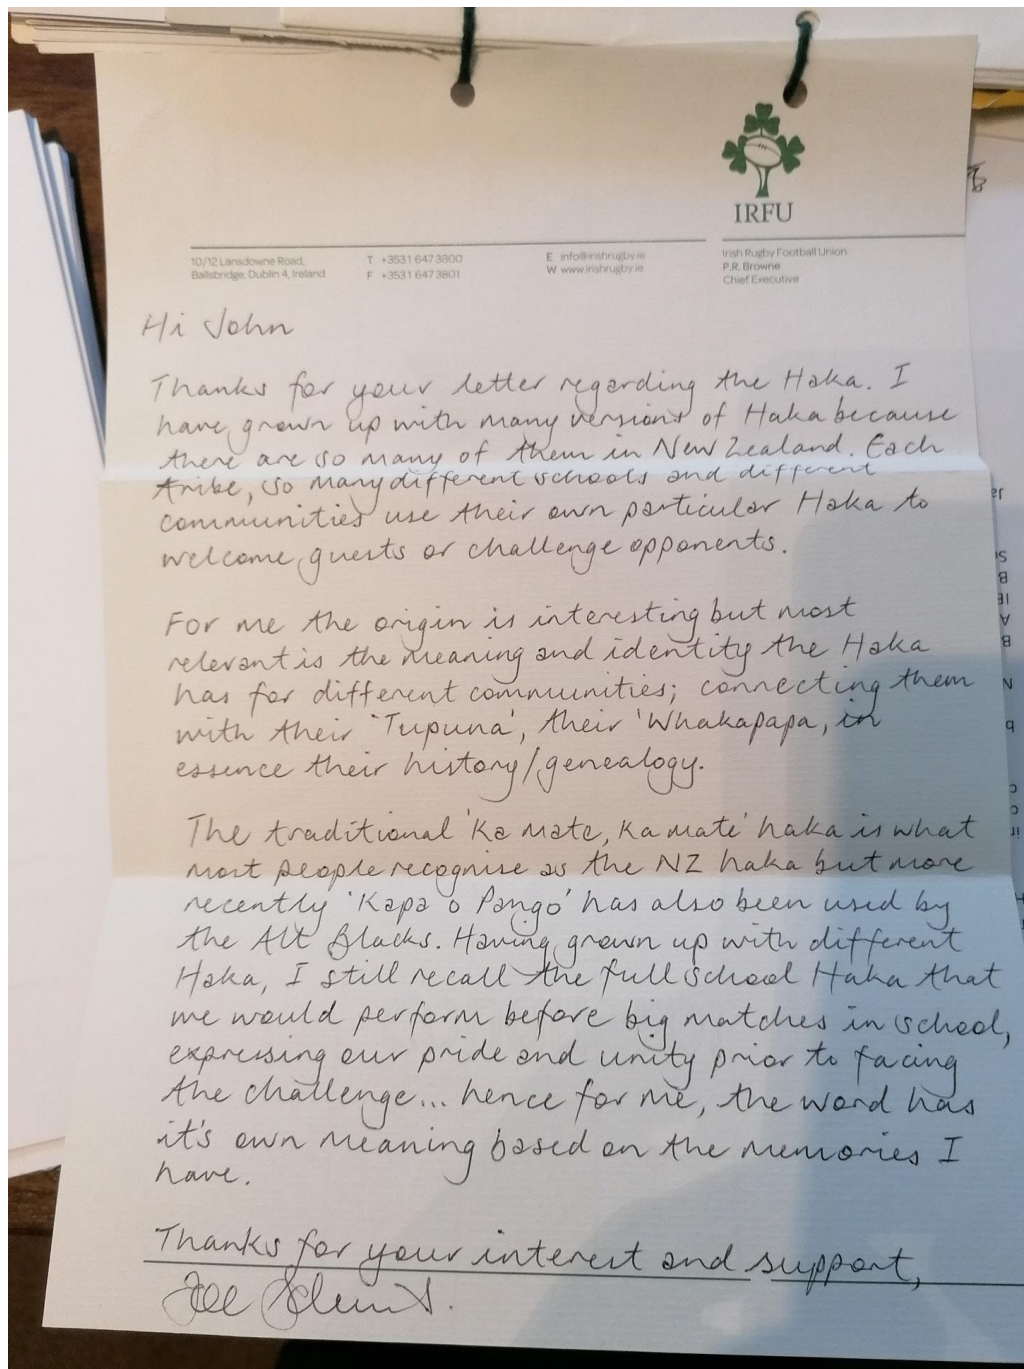 IRFU
10/12 Lansdowne Road,
Ballsbridge, Dublin 4, Ireland
T +3531 647 3800
F +3531 647 3801
E info@irishrugby.ie
W www.irishrugby.ie
Irish Rugby Football Union
P.R. Browne
Chief Executive
Hi John
Thanks for your letter regarding the Haka. I
have grown up with many versions of Haka because
there are so many of them in New Zealand. Each
tribe, so many different schools and different
communities use their own particular Haka to
welcome guests or challenge opponents.
For me the origin is interesting but most
relevant is the meaning and identity the Haka
has for different communities; connecting them
with their 'Tupuna', their 'Whakapapa, in
essence their history/genealogy.
The traditional 'Ka mate, Ka mate' haka is what
most people recognise as the NZ haka but more
recently 'Kapa o Pango' has also been used by
the All Blacks. Having grown up with different
Haka, I still recall the full school Haka that
we would perform before big matches in school,
expressing our pride and unity prior to facing
the challenge... hence for me, the word has
it's own meaning based on the memories I
have.
Thanks for your interest and support,
Joe Schmidt.